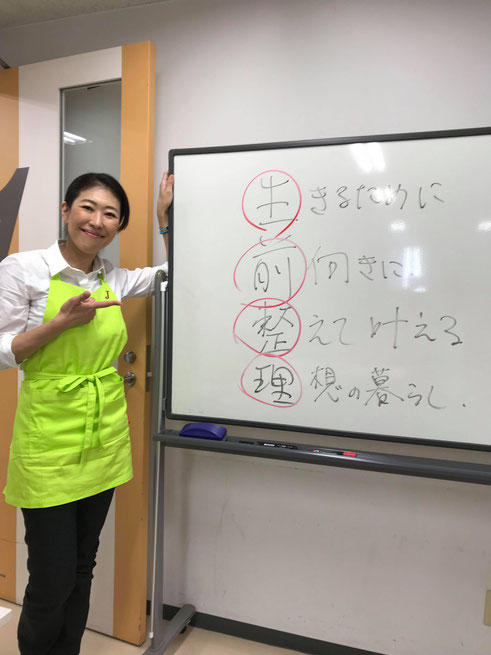 生きるために
前向きに
整えて叶える
理想の暮らし.
J